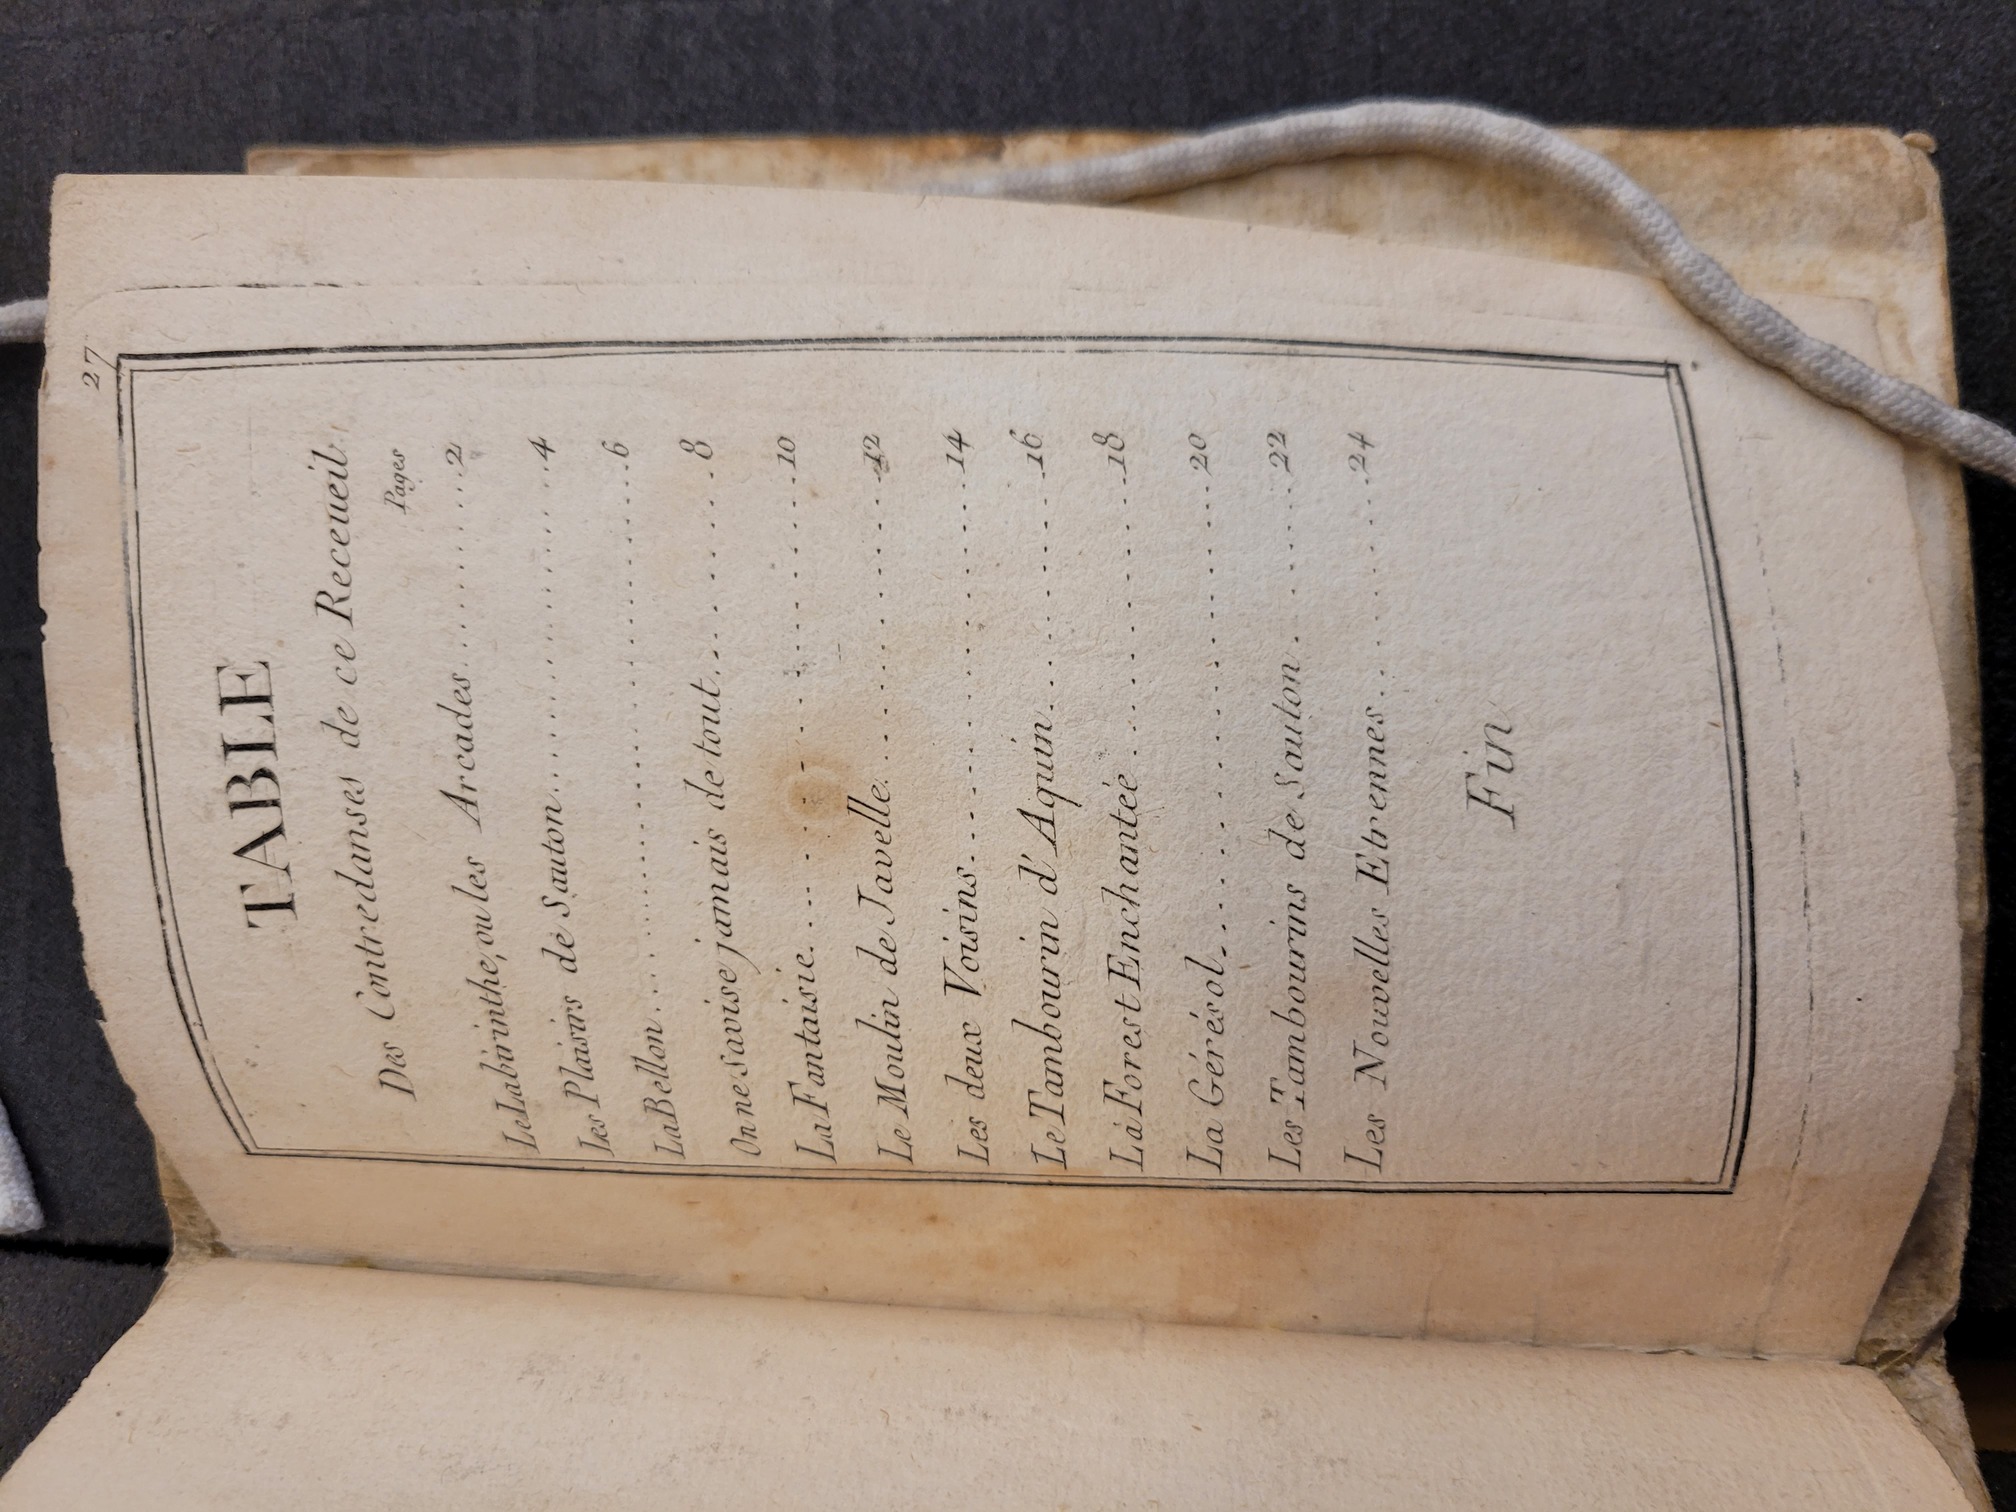 27
TABLE
Des Contredanses de ce Receueil.
Pages
Le Labirinthe, ou les Arcades..............2
Les Plaisirs de Sauton..................4
La Bellon..........................6
On ne s'avise jamais de tout..........8
La Fantaisie....................10
Le Moulin de Javelle..............12
Les deux Voisins..................14
Le Tambourin d'Aquin............16
La Forest Enchantée..............18
La Gérésol......................20
Les Tambourins de Sauton..........22
Les Nouvelles Etrennes............24
Fin